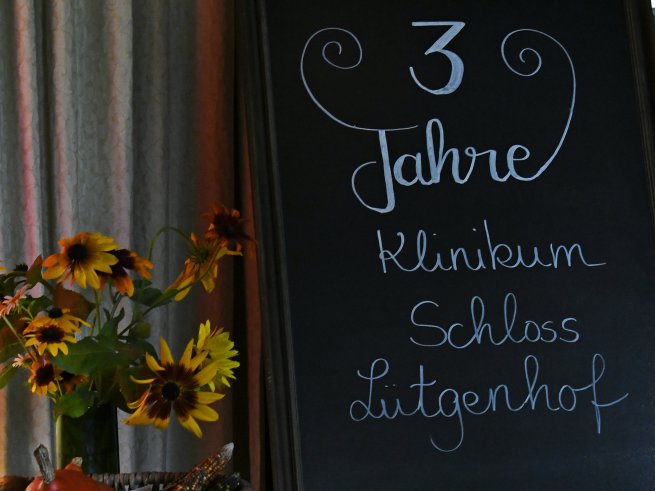 3
Jahre
Klinikum
Schloss
Lütgenhof